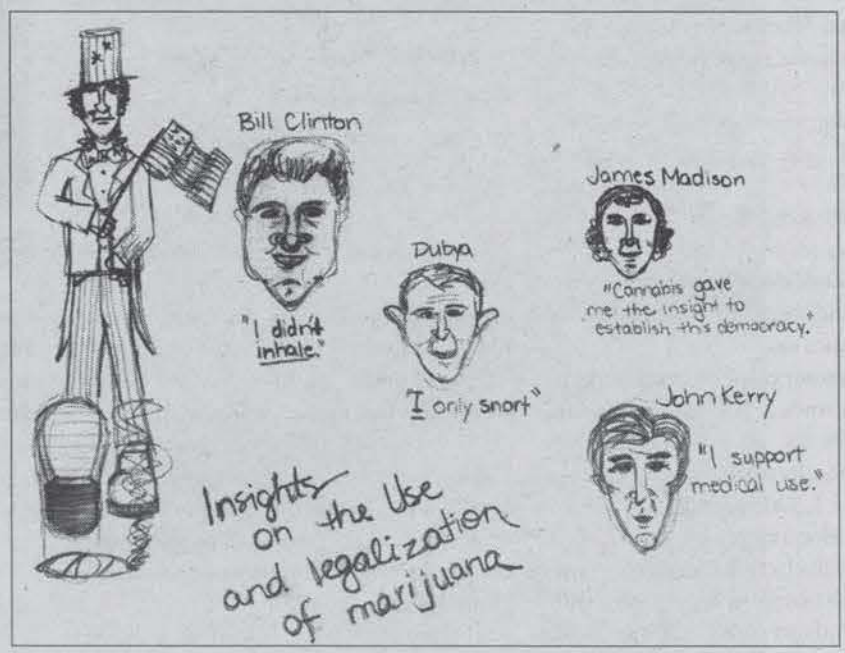 Bill Clinton
"I didn't
inhale."
Dubya
"I only snort"
James Madison
"Cannabis gave
me the insight to
establish this democracy."
John Kerry
"I support
medical use."
Insights
on the Use
and legalization
of marijuana